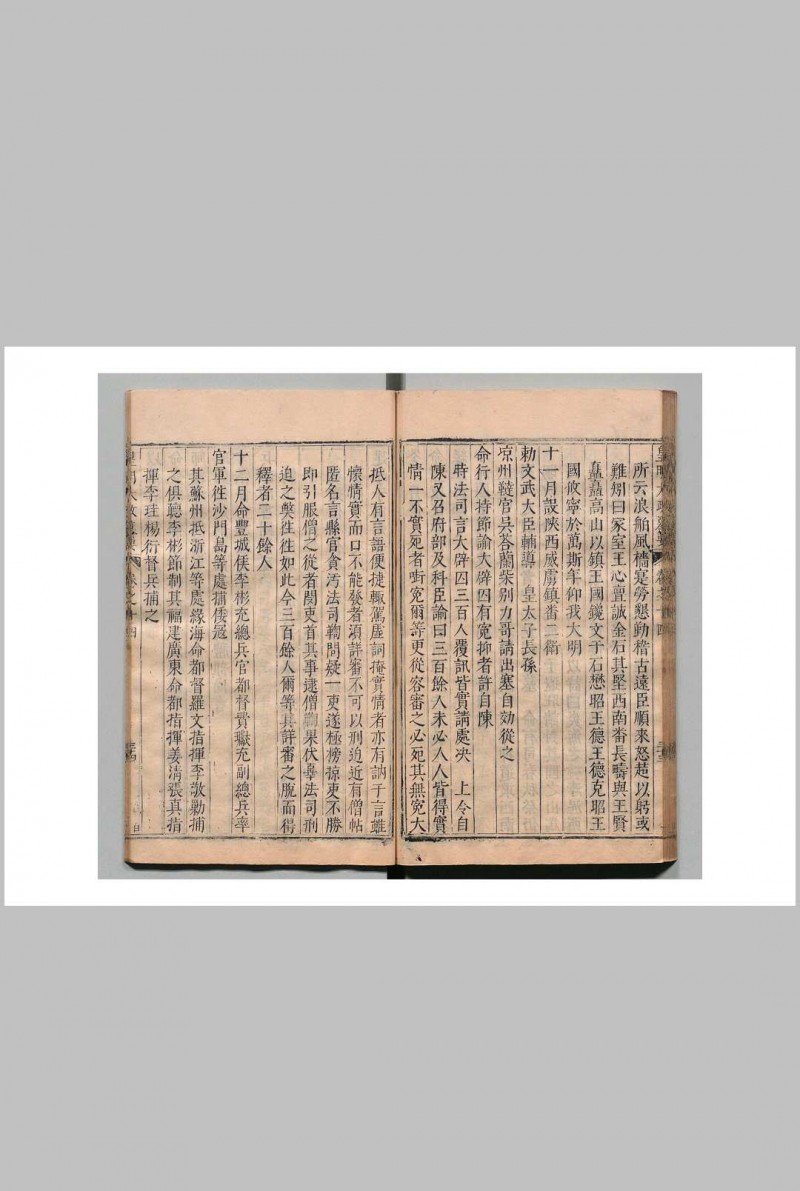 所云浪舶風檣寔勞懇勤稽古遠臣順來怒趦以躬或
難矧曰家室王心亶誠金石其堅西南畨長疇與王賢
矗矗高山以鎮王國鑱文于石懋昭王德王德克昭王
國攸寧於萬斯年仰我大明
十一月設陜西威虜鎮畨二衛
勑文武大臣輔導 皇太子長孫
凉州韃官吳荅蘭柴别力哥請出塞自効從之
命行人持節諭大辟囚有寃抑者許自陳
時法司言大辟囚三百人覆訊皆實請處决 上令自
陳又召府部及科臣諭曰三百餘人未必人人皆得實
情一不實死者啣寃爾等更從容審之必死其無寃大
抵人有言語便捷輒駕虛詞掩實情者亦有訥于言雖
懷情實而口不能發者湏詳審不可以刑迫近有僧帖
匿名言縣官貪汚法司鞫問疑一吏遂極榜掠吏不勝
即引服僧之從者聞吏首其事逮僧鞫果伏辜法司刑
迫之獘徃徃如此今三百餘人爾等其詳審之旣而得
釋者二十餘人
十二月命豐城侯李彬充總兵官都督費瓛充副總兵率
官軍徃沙門島等處捕倭寇
其蘇州抵浙江等處緣海命都督羅文指揮李敬勦捕
之俱聽李彬節制其福建廣東命都指揮姜清張真指
揮李珪楊衍督兵捕之